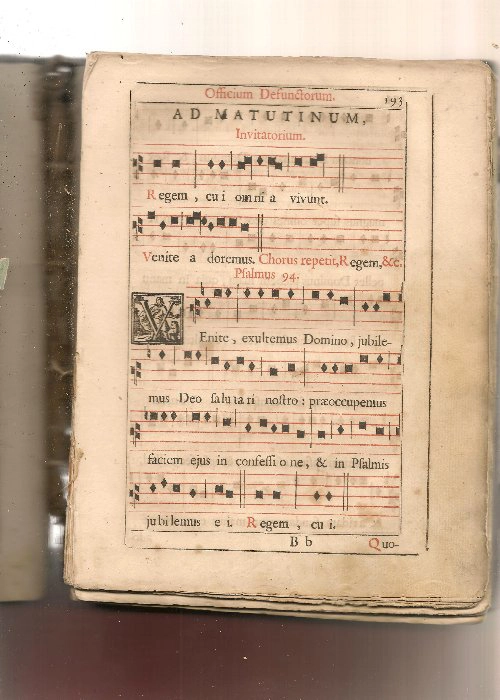 Officium Defunctorum. 193
AD MATUTINUM,
Invitatorium.
Regem, cui omnia vivunt.
Venite adoremus. Chorus repetit, Regem, &c.
Psalmus 94.
VEnite, exultemus Domino, jubile-
mus Deo salutari nostro: præoccupemus
faciem ejus in confessione, & in Psalmis
jubilemus ei. Regem, cui.
Bb Quo-